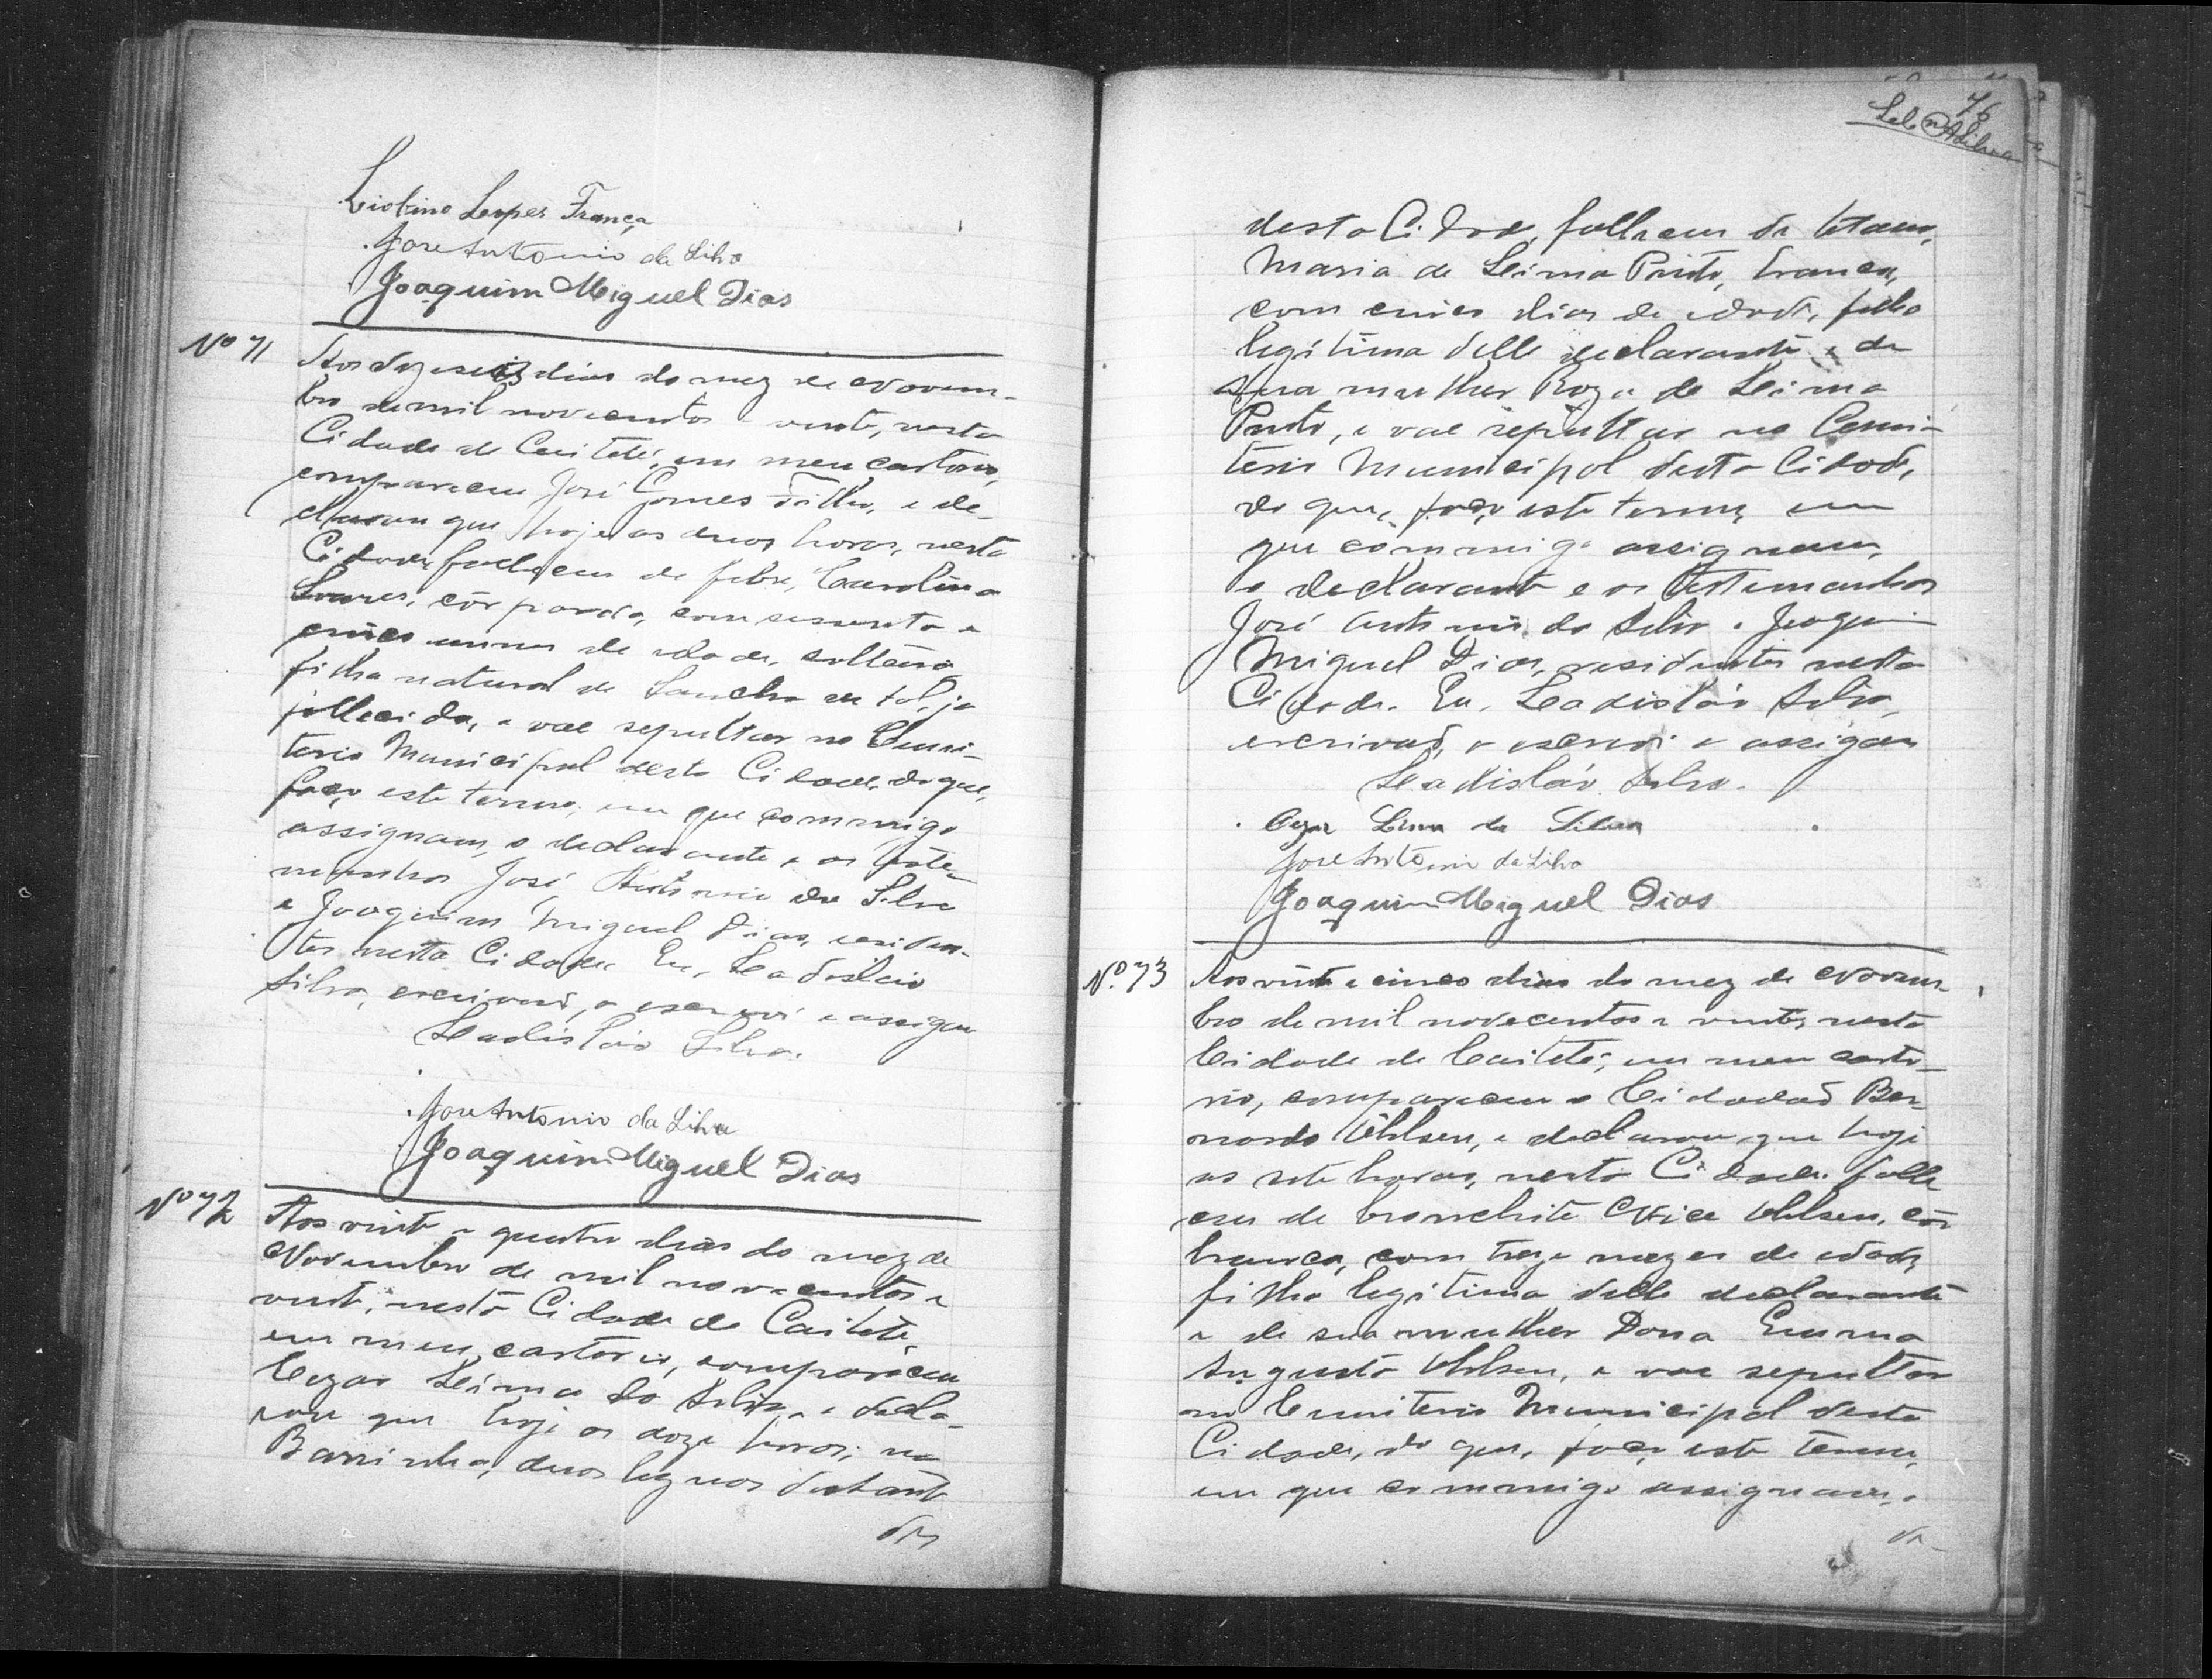 Liotino Lopes França
Jose Antonio da Silva
Joaquim Miguel Dias
Nº 71
Aos dezeseis dias do mez de Novem-
bro de mil novecentos e vinte, nesta
Cidade de Caiteté, em meu cartorio,
compareceu José Gomes Filho, e de-
clarou que hoje as duas horas, nesta
Cidade, falleceu de febre, Carolina
Soares, côr parda, com sessenta e
cinco annos de idade, solteira
filha natural de Sancha de tal, ja
fallecida, e vae sepultar no Cemi-
terio Municipal desta Cidade, do que,
faço este termo, em que commigo
assignam, o declarante e as teste-
munhas José Antonio da Silva
e Joaquim Miguel Dias, residen-
tes nesta Cidade. Eu, Leadisláo
Silva, escrivão, o escrevi e assigno
Leadisláo Silva.
Jose Antonio da Silva
Joaquim Miguel Dias
Nº 72
Aos vinte e quatro dias do mez de
Novembro de mil novecentos e
vinte, nesta Cidade de Caiteté,
em meu cartorio, compareceu
Cezar Leima da Silva, e decla-
rou que hoje as doze horas, na
Barrinha, duas leguas distante
des
76
desta Cidade, falleceu de tetano,
Maria de Leima Pinto, branca,
com cinco dias de idade, filha
legitima delle declarante e de
sua mulher Roza de Leima
Pinto, e vae sepultar no Cemi-
terio Municipal desta Cidade,
do que, faço este termo, em
que commigo assignam,
o declarante e as testemunhas
José Antonio da Silva e Joaquim
Miguel Dias, residentes nesta
Cidade. Eu, Leadisláo Silva,
escrivão, o escrevi e assigno
Leadisláo Silva.
Cezar Lima da Silva
Jose Antonio da Silva
Joaquim Miguel Dias
Nº. 73
Aos vinte e cinco dias do mez de Novem-
bro de mil novecentos e vinte, nesta
Cidade de Caiteté, em meu carto-
rio, compareceu o Cidadão Ber-
nardo Uhlsen, e declarou que hoje
as sete horas, nesta Cidade falle
ceu de bronchite Nice Uhlsen, côr
branca, com treze mezes de idade,
filha legitima delle declarante
e de sua mulher Dona Emma
Augusta Uhlsen, e vae sepultar
no Cemiterio Municipal desta
Cidade, do que, faço este termo,
em que commigo assignam, o
de-